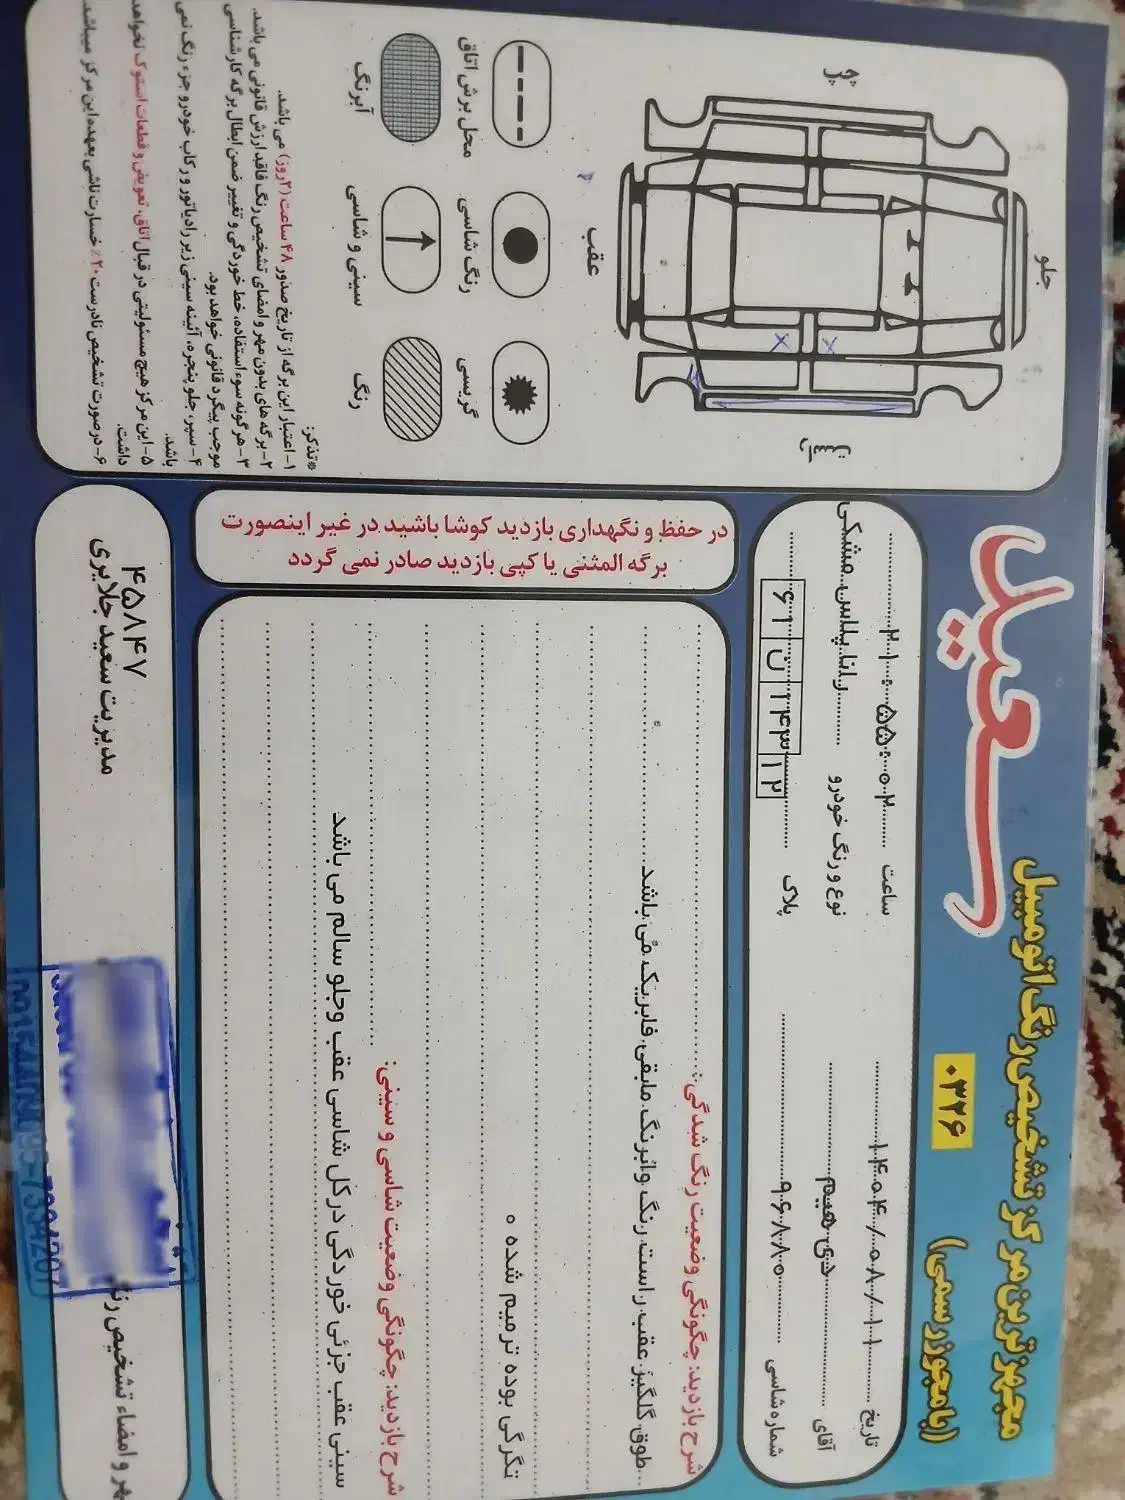 مجهزترین مرکز تشخیص رنگ اتومبیل
سعید
(با مجوز رسمی)
۰۳۲۶
تاریخ ۱۴۰۴/۰۸/۱۱
ساعت ۲۱:۵۵:۰۲
آقای
نوع و رنگ خودرو رانا پلاس مشکی
شماره شاسی ۹۶۸۸۰
پلاک ۶۱ ن ۱۴۳ ۱۲
شرح بازدید: چگونگی وضعیت رنگ شدگی:
طوق گلگیر عقب راست رنگ وابرنگ مابقی فابریک می باشد
تگرگی بوده ترمیم شده ه
شرح بازدید: چگونگی وضعیت شاسی و سینی:
سینی عقب جزئی خوردگی درکل شاسی عقب وجلو سالم می باشد
مهر و امضاء تشخیص رنگ
۴۵۸۴۷
مدیریت سعید جلایری
در حفظ و نگهداری بازدید کوشا باشید در غیر اینصورت
برگه المثنی یا کپی بازدید صادر نمی گردد
جلو
چپ
راست
عقب
محل برش اتاق
رنگ شاسی
گریسی
آبرنگ
سینی و شاسی
رنگ
*تذکر:
۱- اعتبار این برگه از تاریخ صدور ۴۸ ساعت (۲روز) می باشد.
۲- برگه های بدون مهر و امضای تشخیص رنگ فاقد ارزش قانونی می باشد.
۳- هرگونه سوء استفاده، خط خوردگی و تغییر ضمن ابطال برگه کارشناسی
موجب پیگرد قانونی خواهد بود.
۴- سپر، جلو پنجره، آئینه سینی زیر رادیاتور و رکاب خودرو جزء رنگ نمی
باشد.
۵- این مرکز هیچ مسئولیتی در قبال اتاق، تعویض و قطعات استوک نخواهد
داشت.
۶- درصورت تشخیص نادرست ۲۰٪ خسارت ناشی بعهده این مرکز میباشد